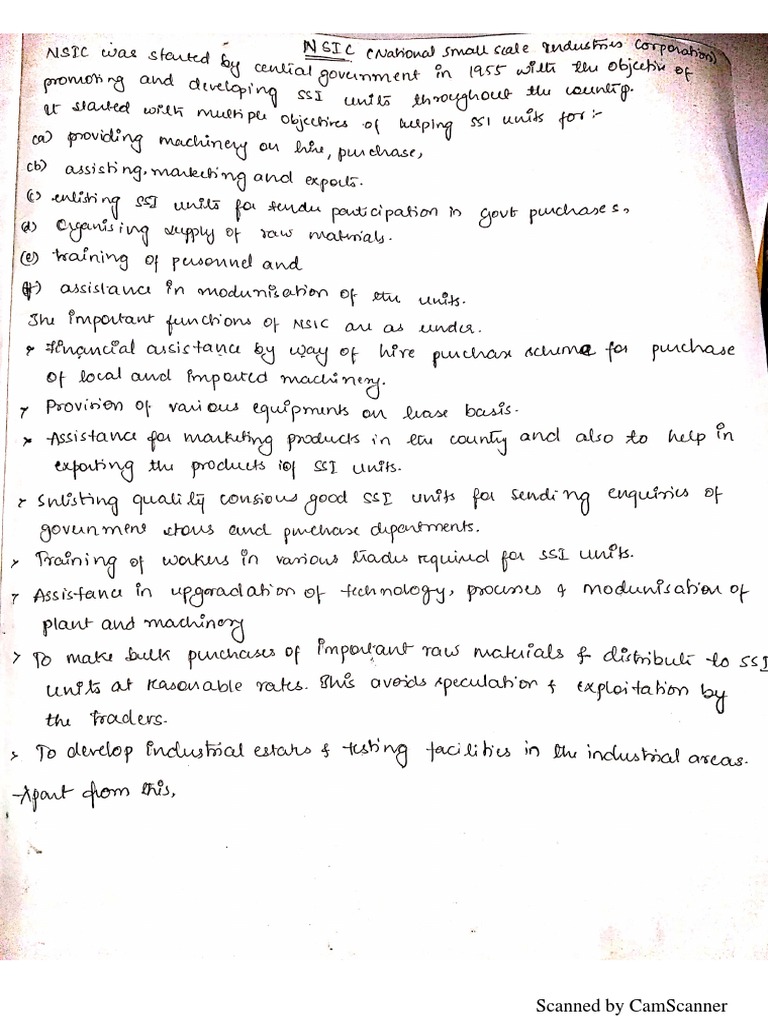 NSIC (National Small Scale Industries Corporation)
NSIC was started by central government in 1955 with the objective of
promoting and developing SSI units throughout the country.
It started with multiple objectives of helping SSI units for :-
(a) providing machinery on hire, purchase,
(b) assisting, marketing and exports.
(c) enlisting SSI units for tender participation in govt purchases,
(d) Organising supply of raw materials.
(e) training of personnel and
(f) assistance in modernisation of the units.
The important functions of NSIC are as under.
> Financial assistance by way of hire purchase scheme for purchase
of local and imported machinery.
> Provision of various equipments on lease basis.
> Assistance for marketing products in the country and also to help in
exporting the products of SSI units.
> Enlisting quality consious good SSI units for sending enquiries of
government stores and purchase departments.
> Training of workers in various trades required for SSI units.
> Assistance in upgradation of technology, processes & modernisation of
plant and machinery
> To make bulk purchases of important raw materials & distribute to SSI
units at reasonable rates. This avoids speculation & exploitation by
the traders.
> To develop industrial estates & testing facilities in the industrial areas.
Apart from this,
Scanned by CamScanner